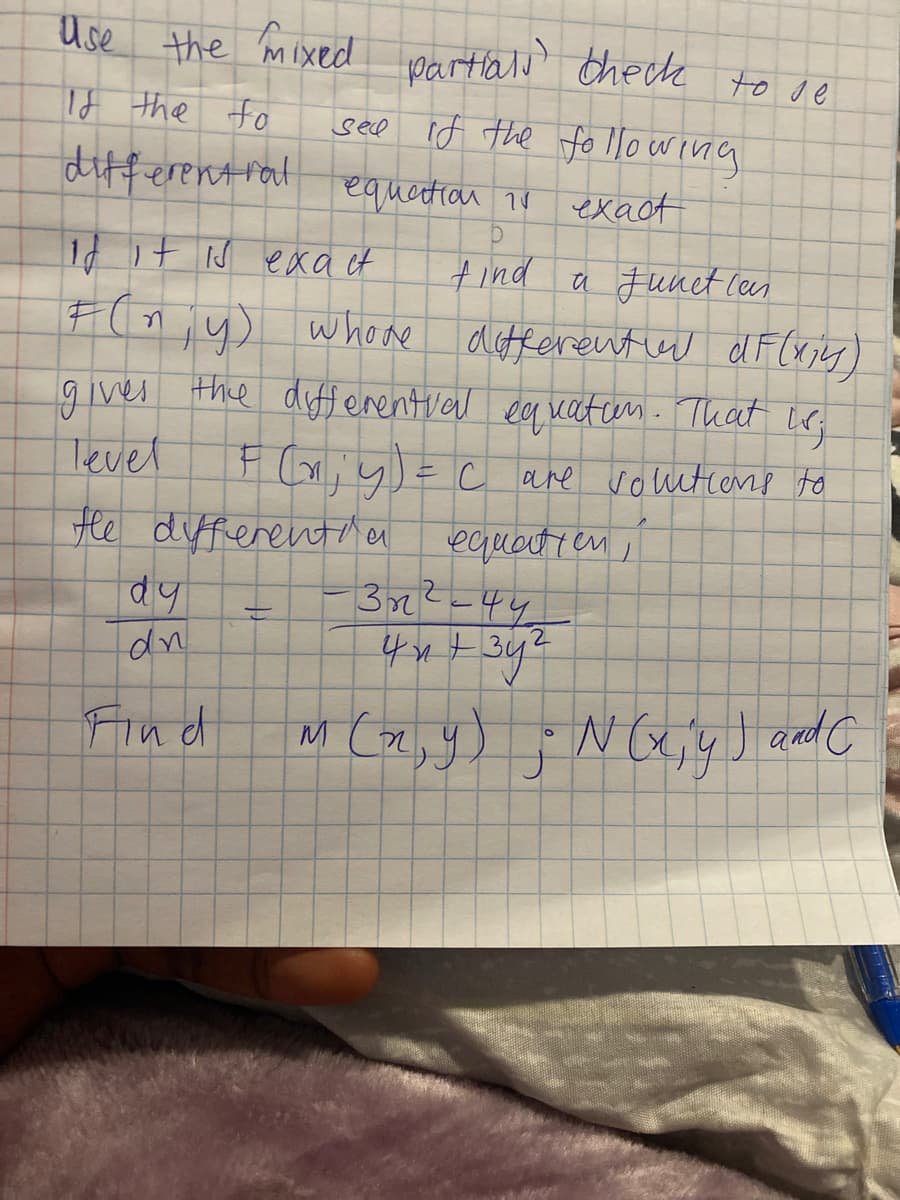 Use the "mixed partials" check to se
If the fo see if the following
differential equation is exact
If it is exact find a function
F(x;y) whose differential dF(x;y)
gives the differential equation. That is;
level F(x;y) = C are solutions to
the differentia equation;
dy/dx = -3x²-4y / 4x+3y²
Find M(x,y) ; N(x;y) and C